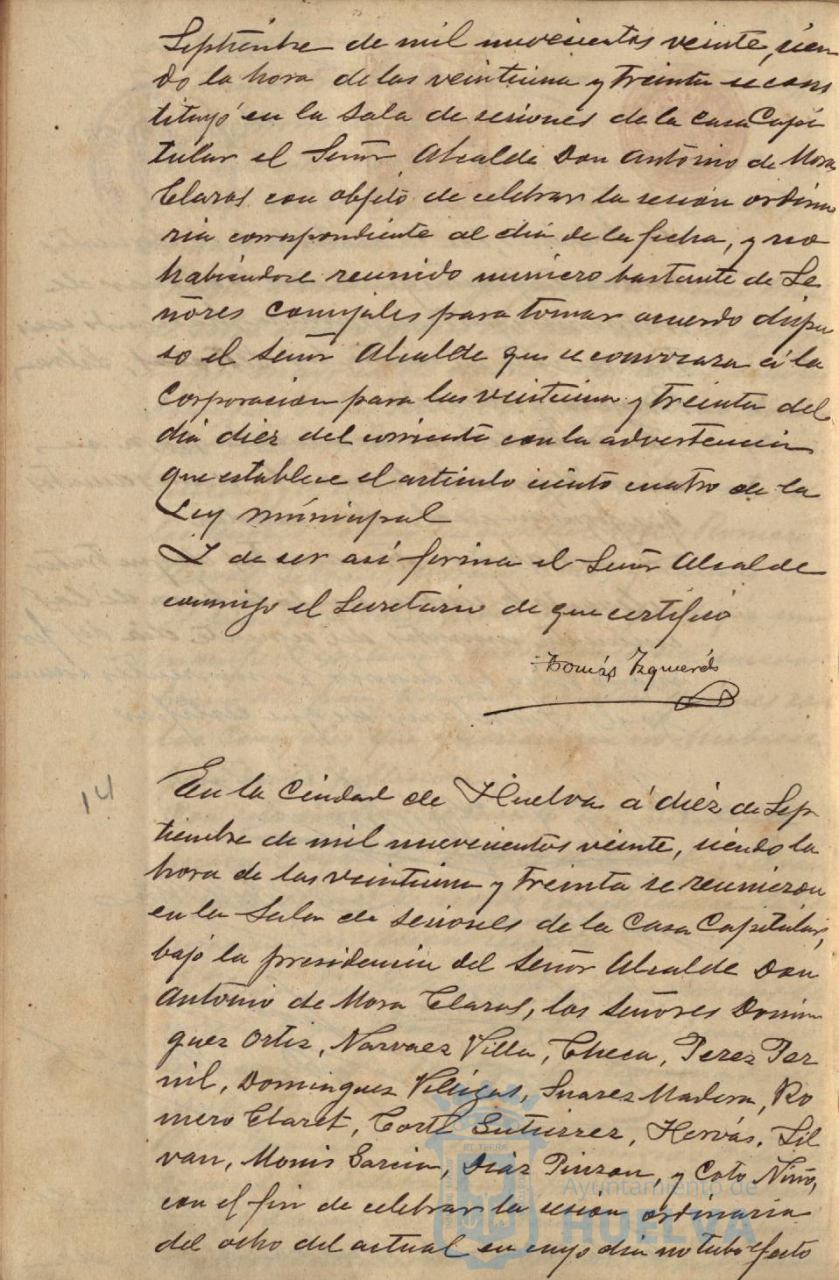 Septiembre de mil novecientos veinte, sien
do la hora de las veintiuna y treinta se cons
tituyó en la Sala de sesiones de la Casa Capi
tular el Señor Alcalde Don Antonio de Mora
Claros con objeto de celebrar la sesión ordina
ria correspondiente al día de la fecha, y no
habiéndose reunido número bastante de Se
ñores Concejales para tomar acuerdo dispu
so el Señor Alcalde que se convocara á la
Corporación para las veintiuna y treinta del
día diez del corriente con la advertencia
que establece el artículo ciento cuatro de la
Ley municipal
Y de ser así firma el Señor Alcalde
conmigo el Secretario de que certifico
Tomás Izquierdo
14
En la Ciudad de Huelva á diez de Sep
tiembre de mil novecientos veinte, siendo la
hora de las veintiuna y treinta se reunieron
en la Sala de Sesiones de la Casa Capitular,
bajo la presidencia del Señor Alcalde Don
Antonio de Mora Claros, los Señores Domin
guez Ortiz, Narvaez Villa, Checa, Perez Per
nil, Dominguez Villegas, Suarez Madera, Ro
mero Claret, Corte Gutierrez, Hervás, Sil
van, Monis Garcia, Diaz Pinzon, y Coto Niño,
con el fin de celebrar la sesión ordinaria
del ocho del actual en cuyo día no tubo efecto
Ayuntamiento de
HUELVA